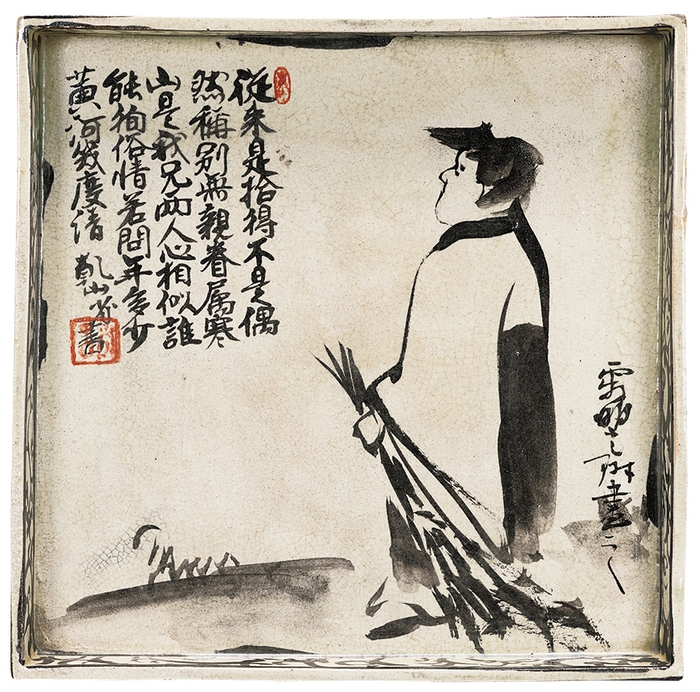 從来是拾得不是偶
然稱別無親眷属寒
山是我兄两人心相似誰
能徇俗情若問年多少
黄河幾度清 乾山省書